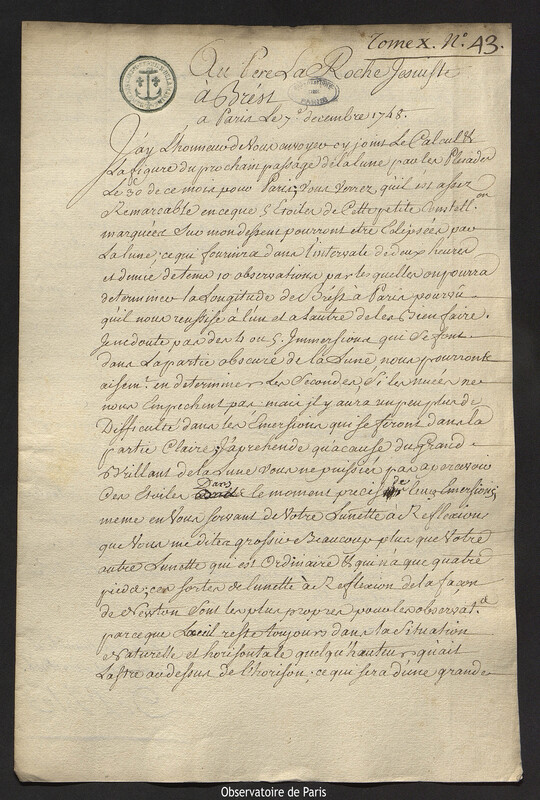 Tome X. N.° 43.
Au Pere La Roche Jesuiste
à Brést
à Paris Le 7.e decembre 1748.
J'ay L'honneur de Vous envoyer cy joint Le Calcul &
La figure du prochain passage de la lune par les Pleiades
Le 30 de ce mois pour Paris; Vous Verrez qu'il est assez
Remarcable en ce que 5 Etoiles de Cette petite Constell.on
marquées Sur mon dessein pourront etre Eclipsées par
La lune; ce qui fournira dans l'intervale de deux heures
et demie de tems 10 observations par les quelles on pourra
determiner la Longitude de Brést à Paris pourvû
qu'il nous reussisse à l'un et à l'autre de les Bien faire.
Je ne doute pas des 4 ou 5. Immersions qui Se font
dans La partie obscure de la Lune, nous pourrons
aisem.t en determiner Les Secondes, Si les nuées ne
nous Empechent pas mais il y aura un peu plus de
Difficulté dans les Emersions qui se feront dans la
partie Claire; J'aprehende qu'a cause du Grand
Brillant de la Lune Vous ne puissiez pas apercevoir
Ces Etoiles Dans le moment precis de leurs Emersions
meme en Vous servant de Votre Lunette à Reflexion
que Vous me dites grossir Beaucoup plus que Votre
autre Lunette qui est Ordinaire & qui n'a que quatre
pieds; ces sortes de lunette à Reflexion de la façon
de Newton Sont les plus propres pour les observat.s
parceque L'oeil reste toujours dans la Situation
Naturelle et horisontale quelqu'hauteur qu'ait
L'astre au dessus de l'horison; ce qui sera d'une grande
Observatoire de Paris